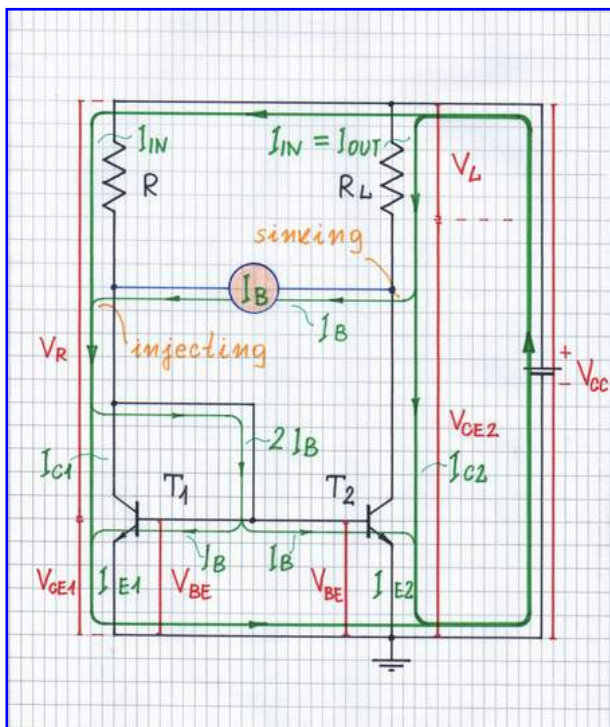 I_IN
I_IN = I_OUT
R
R_L
V_L
sinking
I_B
I_B
injecting
V_R
+
−
V_CC
V_CE2
2 I_B
I_C1
T_1
T_2
I_C2
I_B
I_B
V_CE1
I_E1
V_BE
V_BE
I_E2